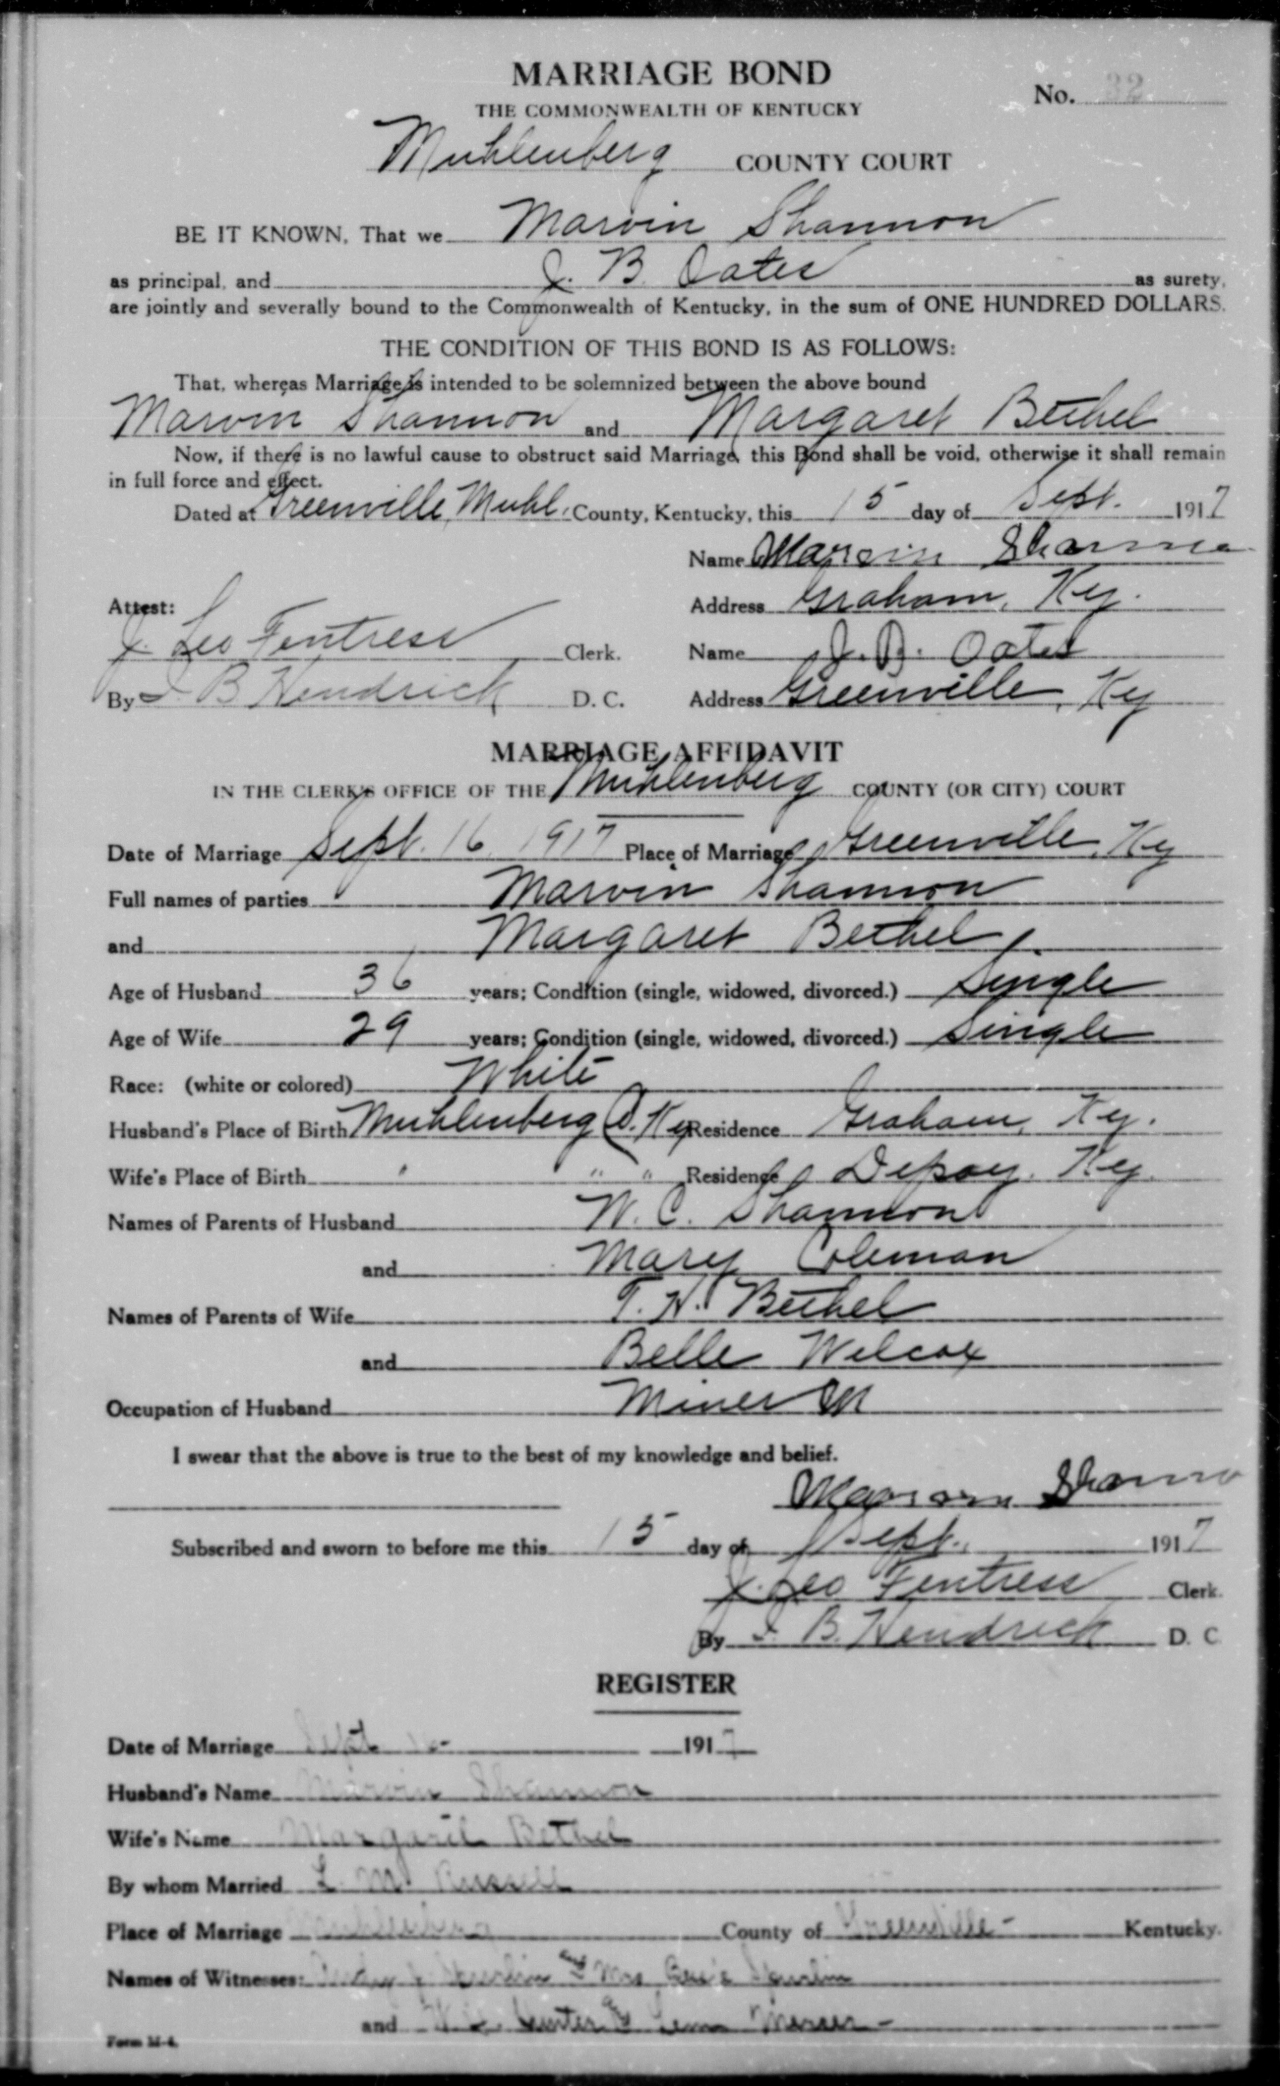 MARRIAGE BOND
No. 32
THE COMMONWEALTH OF KENTUCKY
Muhlenberg COUNTY COURT
BE IT KNOWN, That we Marvin Shannon
as principal, and J. B. Oates as surety,
are jointly and severally bound to the Commonwealth of Kentucky, in the sum of ONE HUNDRED DOLLARS.
THE CONDITION OF THIS BOND IS AS FOLLOWS:
That, whereas Marriage is intended to be solemnized between the above bound
Marvin Shannon and Margaret Bethel
Now, if there is no lawful cause to obstruct said Marriage, this Bond shall be void, otherwise it shall remain
in full force and effect.
Dated at Greenville, Muhl. County, Kentucky, this 15 day of Sept. 1917
Name Marvin Shannon
Attest: Address Graham, Ky.
J. Leo Fentress Clerk. Name J. B. Oates
By I. B. Hendrick D. C. Address Greenville, Ky
MARRIAGE AFFIDAVIT
IN THE CLERK'S OFFICE OF THE Muhlenberg COUNTY (OR CITY) COURT
Date of Marriage Sept. 16 1917 Place of Marriage Greenville, Ky
Full names of parties Marvin Shannon
and Margaret Bethel
Age of Husband 36 years; Condition (single, widowed, divorced.) Single
Age of Wife 29 years; Condition (single, widowed, divorced.) Single
Race: (white or colored) White
Husband's Place of Birth Muhlenberg Co. Ky Residence Graham, Ky.
Wife's Place of Birth " " " Residence Depoy, Ky.
Names of Parents of Husband W. C. Shannon
and Mary Coleman
Names of Parents of Wife T. H. Bethel
and Belle Welcox
Occupation of Husband Miner
I swear that the above is true to the best of my knowledge and belief.
Marvin Shanno
Subscribed and sworn to before me this 15 day of Sept. 1917
J. Leo Fentress Clerk.
By I. B. Hendrick D. C.
REGISTER
Date of Marriage Sept 16 1917
Husband's Name Marvin Shannon
Wife's Name Margaret Bethel
By whom Married L. M. Russell
Place of Marriage Muhlenberg County of Greenville Kentucky.
Names of Witnesses: Spurlin and Mrs Spurlin
and Gunter & Mercer
Form M-4.